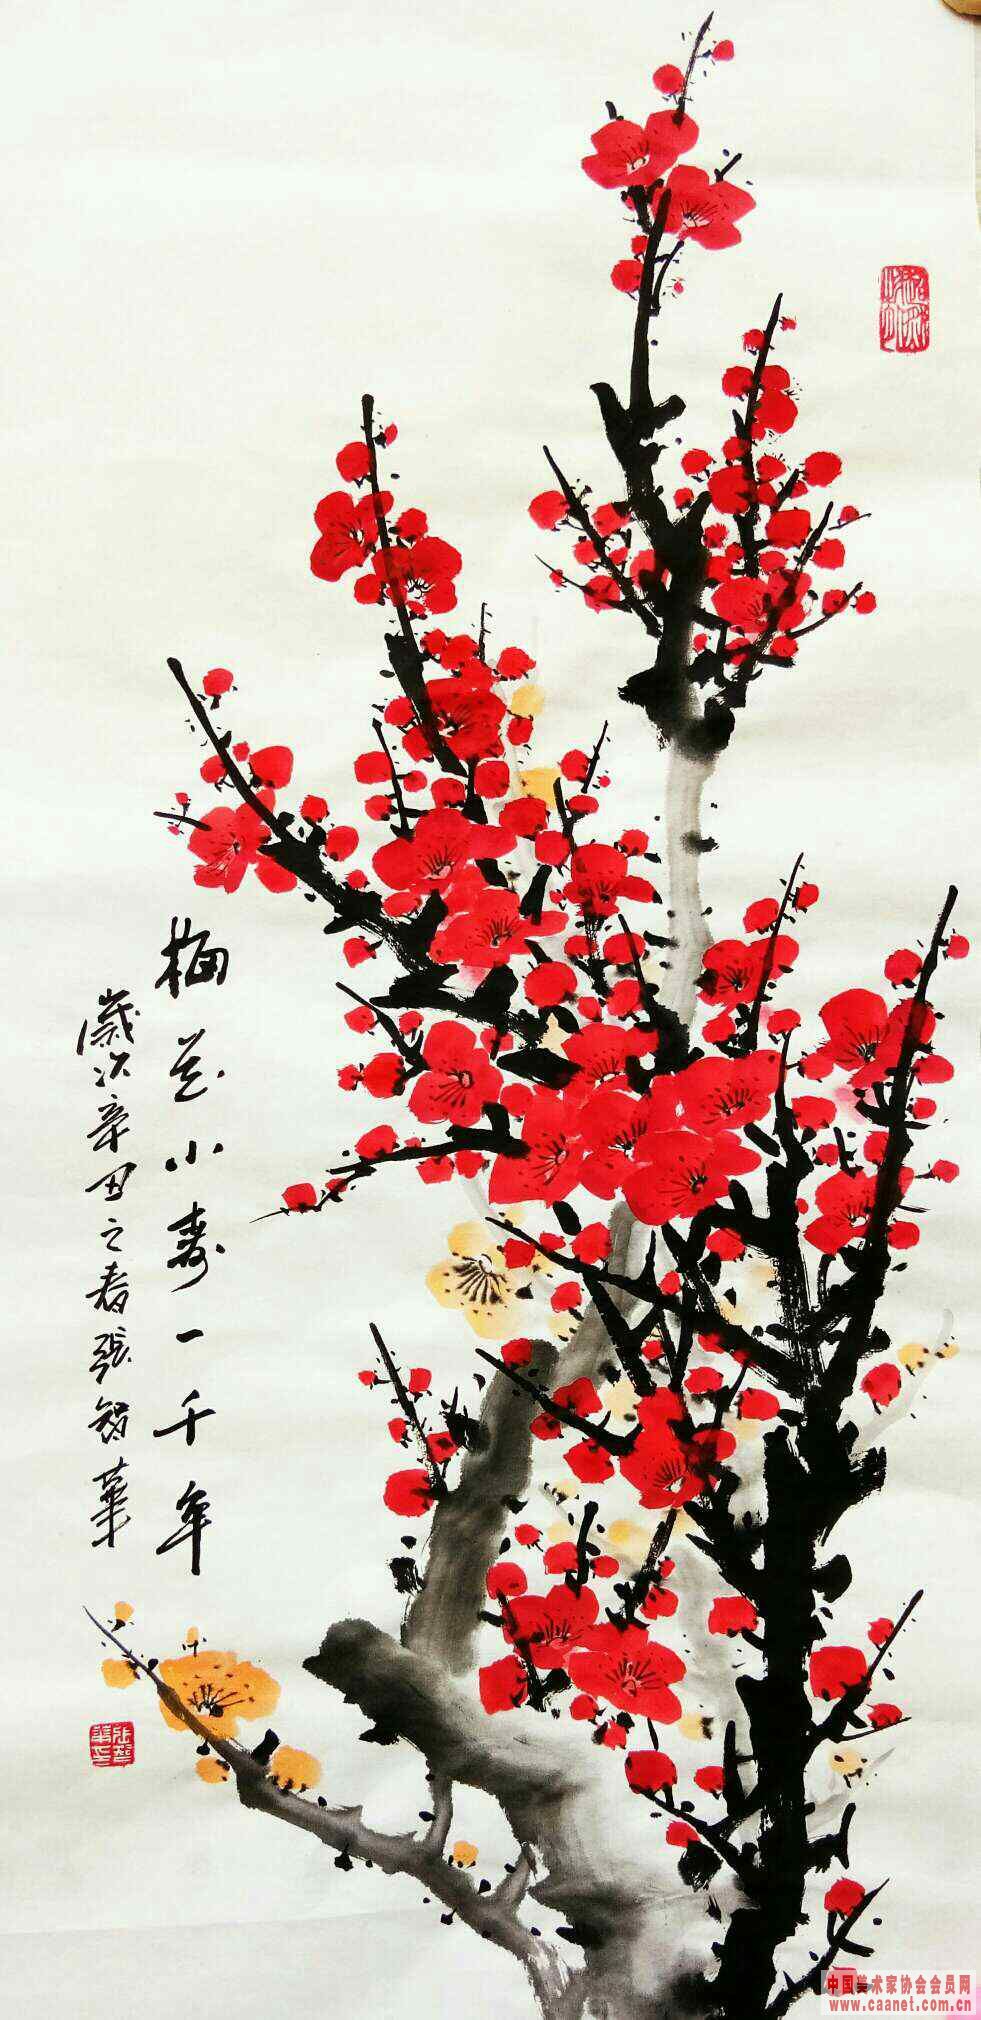 梅花小寿一千年
歲次辛丑之春張智華
中国美术家协会会员网
www.caanet.com.cn